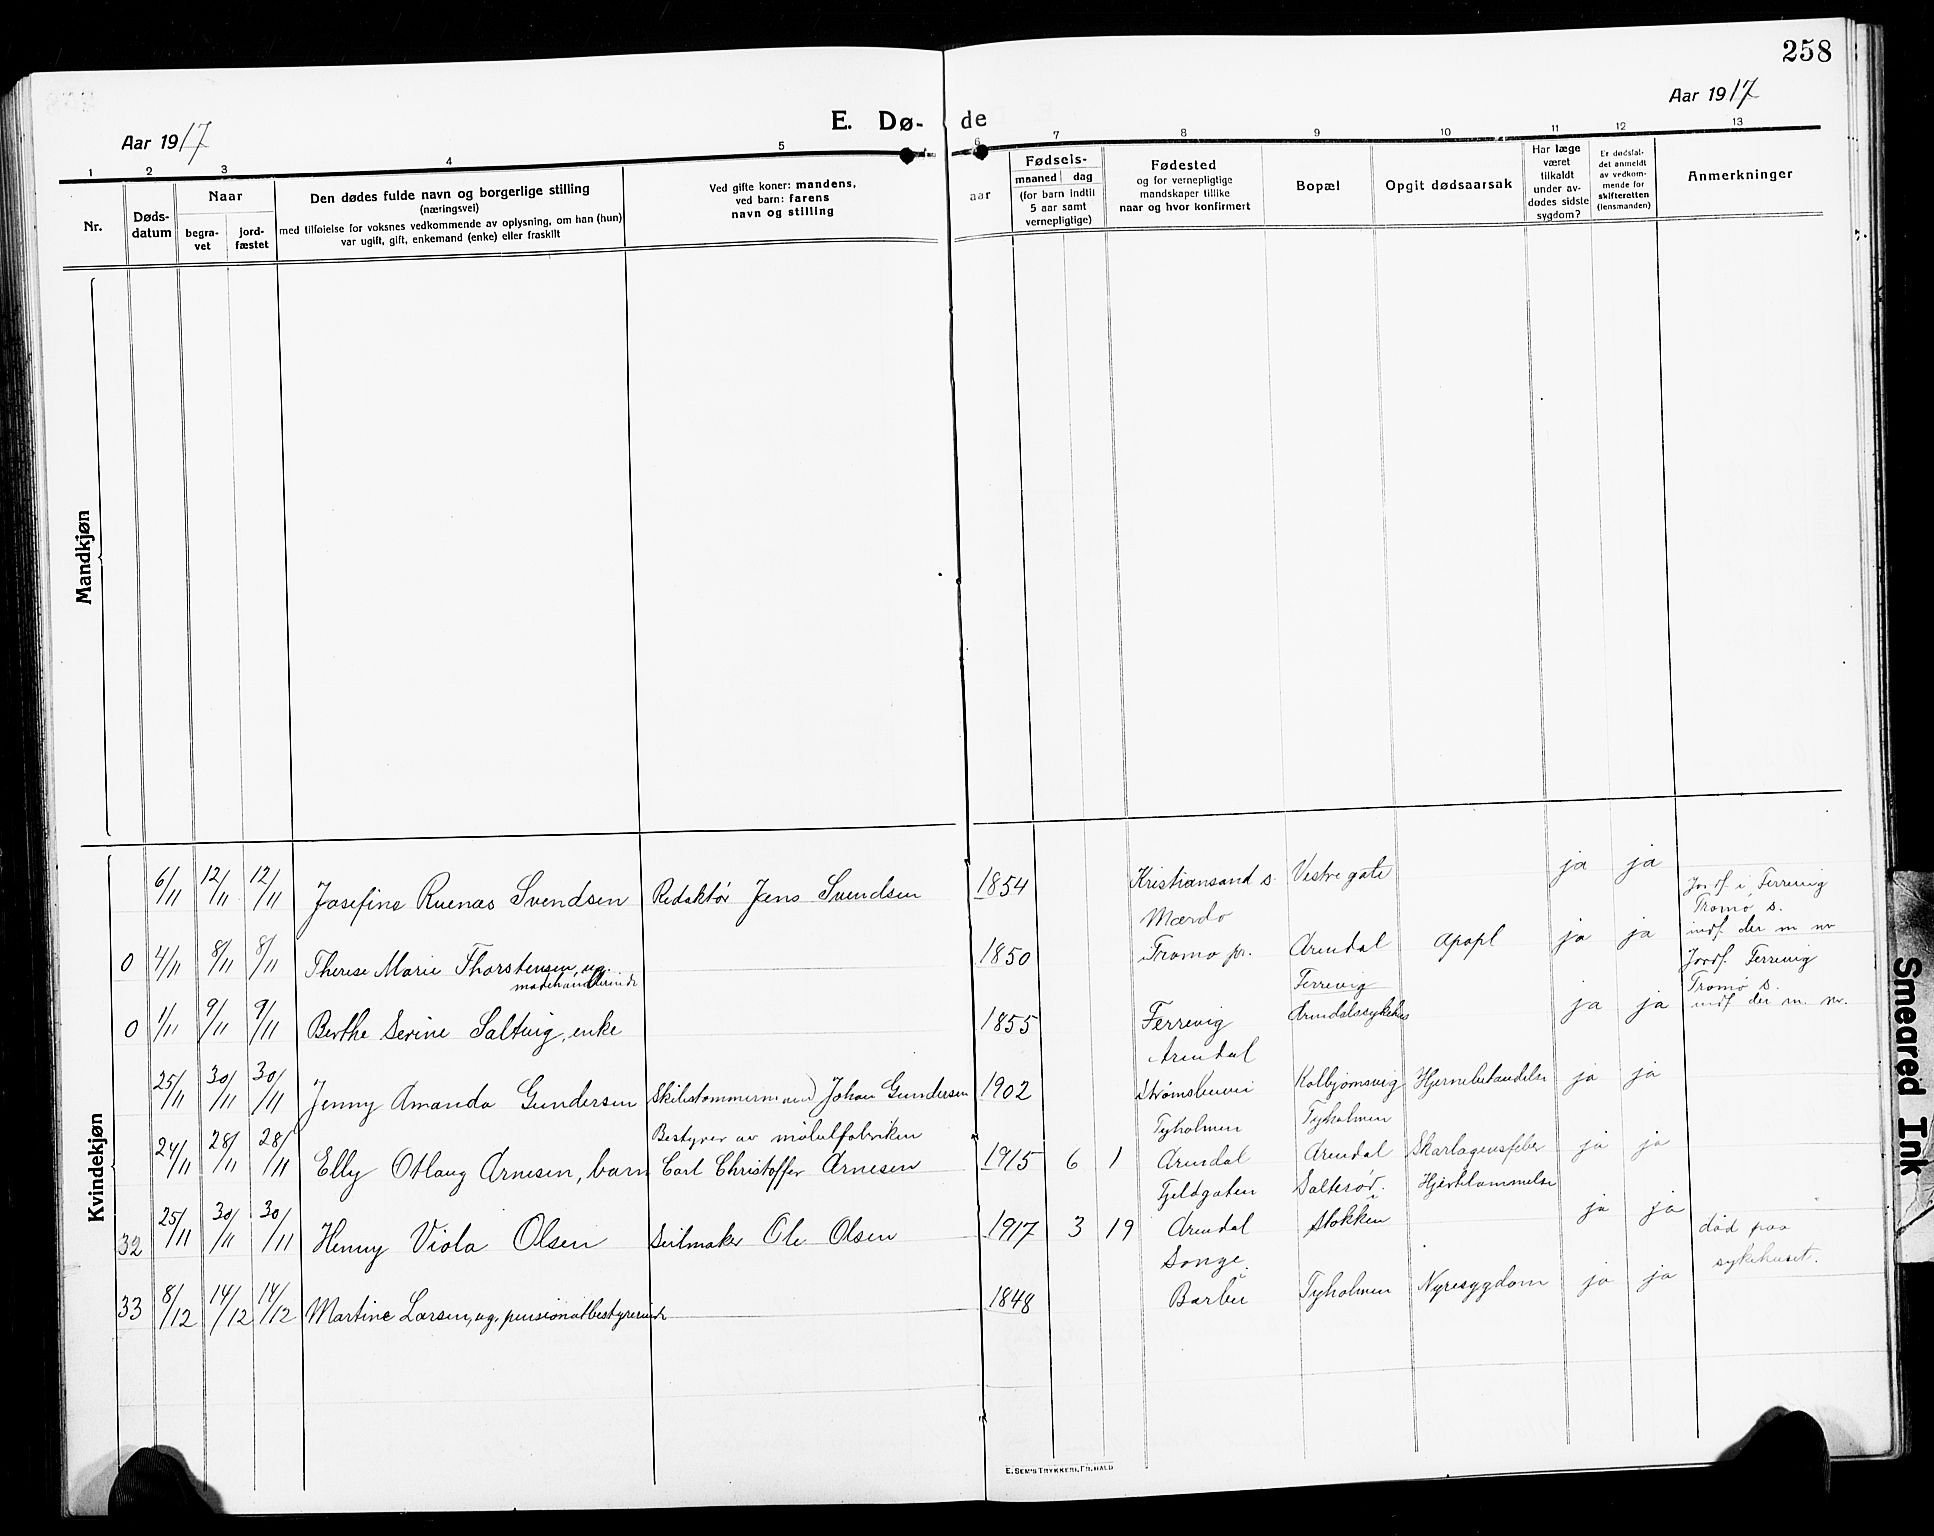 258
Aar 1917
E. Dø-
de
Aar 1917
1 2 3 4 5 6 7 8 9 10 11 12 13
Nr.
Døds-
datum
Naar
begra-
vet
jord-
fæstet
Den dødes fulde navn og borgerlige stilling
(næringsvei)
med tilføielse for voksnes vedkommende av oplysning, om han (hun)
var ugift, gift, enkemand (enke) eller fraskilt
Ved gifte koner: mandens,
ved barn: farens
navn og stilling
aar
Fødsels-
maaned dag
(for barn indtil
5 aar samt
vernepligtige)
Fødested
og for vernepligtige
mandskaper tillike
naar og hvor konfirmert
Bopæl
Opgit dødsaarsak
Har læge
været
tilkaldt
under av-
dødes sidste
sygdom?
Er dødsfal-
det anmeldt
av vedkom-
mende for
skifteretten
(lensmanden)
Anmerkninger
Mandkjøn
Kvindekjøn
6/11 12/11 12/11 Josefine Ruenæs Svendsen Redaktør Jens Svendsen 1854 Kristiansand s. Vestregate ja ja
Jordf. i Færevig
Tromø s.
indf. der m nr
0 4/11 8/11 8/11 Therese Marie Thorstensen, ug.
modehandlerinde
1850
Mærdø
Tromø pr. Arendal Apopl ja ja
Jordf. Færevig
Tromø s.
indf. der m. nr.
0 1/11 9/11 9/11 Berthe Serine Saltvig, enke 1855 Færevig
Færevig
Arendalssykehus ja ja
25/11 30/11 30/11 Jenny Amanda Gundersen Skibstømmermand Johan Gundersen 1902
Arendal
Strømsbuvei Kolbjørnsvig Hjernebetændelse ja ja
24/11 28/11 28/11 Elly Otlaug Arnesen, barn
Bestyrer av møbelfabriken
Carl Christoffer Arnesen 1915 6 1
Tyholmen
Arendal
Tyholmen
Arendal Skarlagensfeber ja ja
32 25/11 30/11 30/11 Henny Viola Olsen Seilmaker Ole Olsen 1917 3 19
Fjeldgaten
Arendal
Salterød i
Stokken
Hjertelammelse ja ja
død paa
sykehuset.
33 8/12 14/12 14/12 Martine Larsen, ug, pensionatbestyrerinde 1848
Songe i
Barbu Tyholmen Nyresygdom ja ja
E. SEM'S TRYKKERI, FR.HALD
Smeared Ink